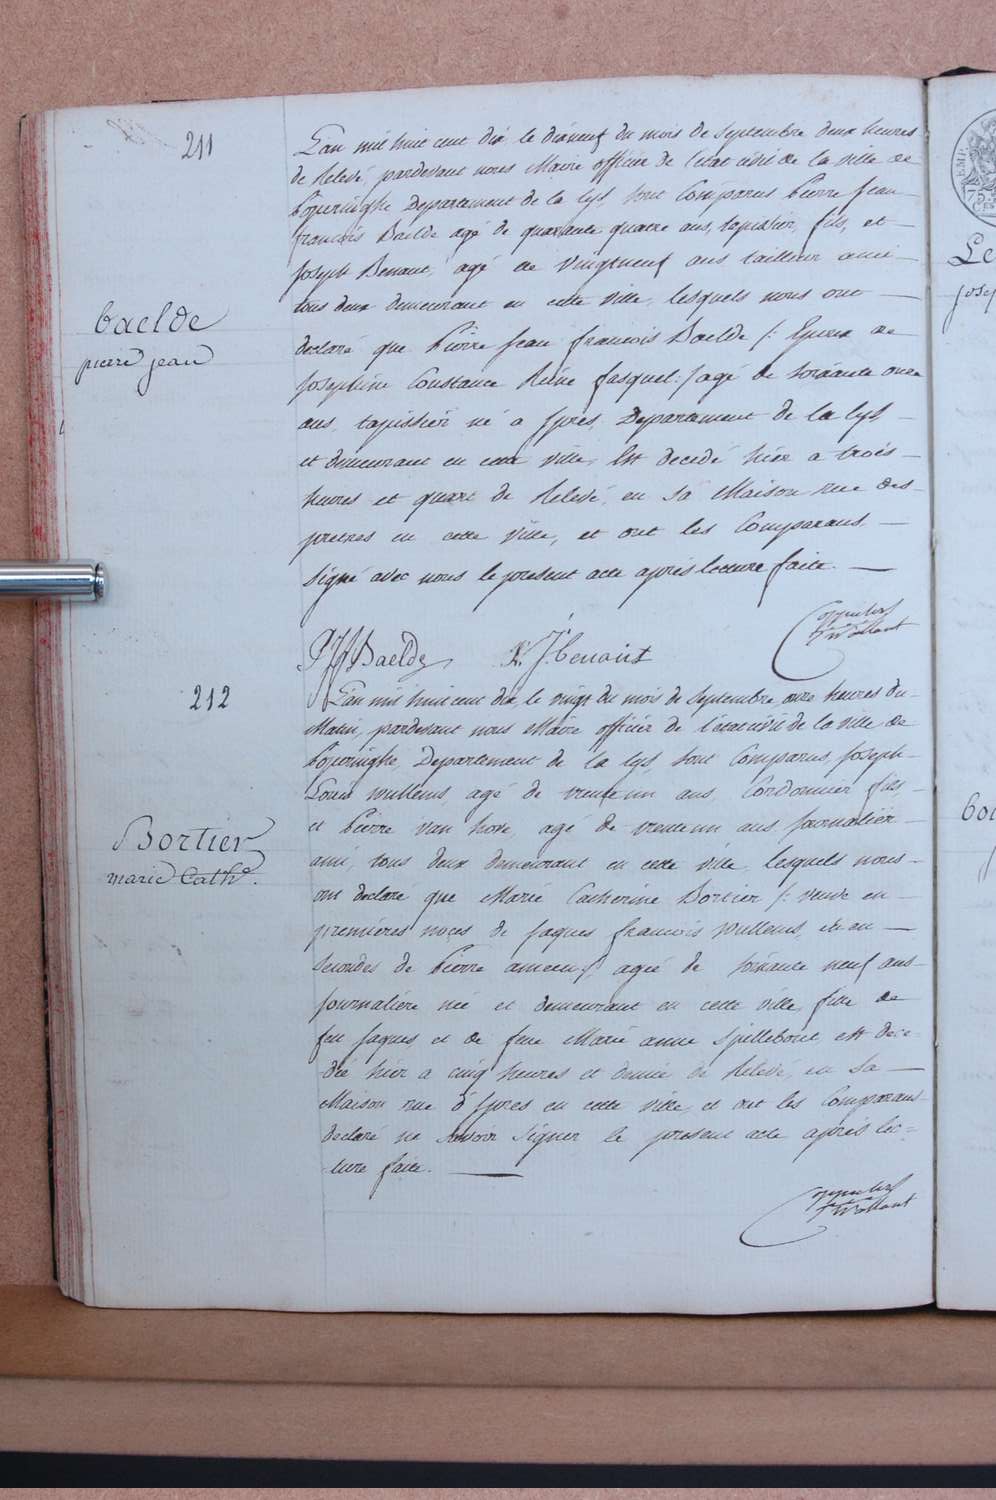 211
L'an mil huit cent dix, le dixneuf du mois de Septembre deux heures
de Relevé, pardevant nous Maire officier de l'état civil de la ville de
Poperinghe Departement de la Lys, sont Comparus Pierre Jean
francois Baelde agé de quarante quatre ans, tapissier, fils, et
Joseph Benaut, agé de vingtneuf ans tailleur ami
tous deux demeurant en cette ville, lesquels nous ont
baelde
pierre jean
declaré que Pierre Jean francois Baelde /: Epoux de
Josephine Constance Reine fasquel :/ agé de soixante onze
ans, tapissier né a Ypres, Departement de la Lys
et demeurant en cette ville, Est decedé hier a trois
heures et quart de Relevé, en sa Maison rue des
pretres en cette ville, et ont les Comparans
signé avec nous le present acte après lecture faite.
PJFBaelde J. benaut
212
L'an mil huit cent dix, le vingt du mois de Septembre, onze heures du
Matin, pardevant nous Maire officier de l'état civil de la ville de
Poperinghe, Departement de la Lys, sont Comparus, Joseph
Louis Wullems, agé de trente un ans, Cordonnier fils,
et Pierre van hove, agé de trente un ans journalier
Bortier
marie Cathe.
ami, tous deux demeurant en cette ville, lesquels nous
ont declaré que Marie Catherine Bortier /: veuve en
premières noces de Jaques francois Wullems, et en
secondes de Pierre :/ agée de soixante neuf ans
journalière née et demeurant en cette ville, fille de
feu Jaques, et de feue Marie anne Spillebout, est dece-
dée hier a cinq heures et demie de Relevé, en sa
Maison rue d'Ypres en cette ville, et ont les Comparans
declaré ne savoir signer le present acte après lec=
ture faite.